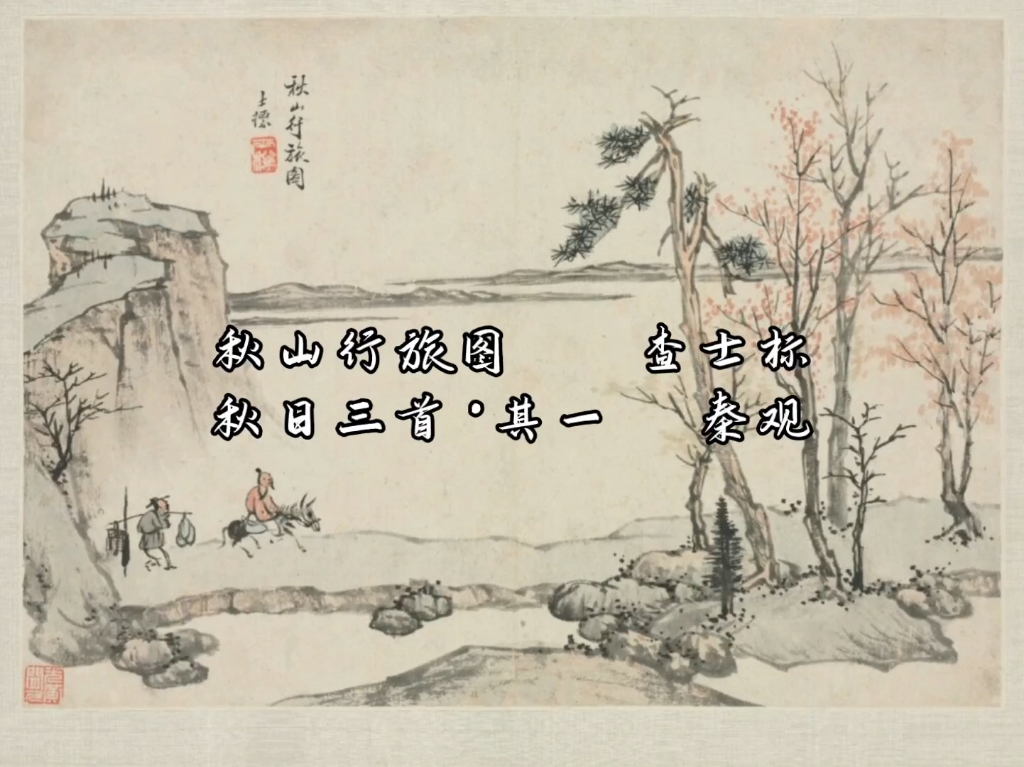 秋山行旅图
士標
秋山行旅图 查士标
秋日三首·其一 秦观